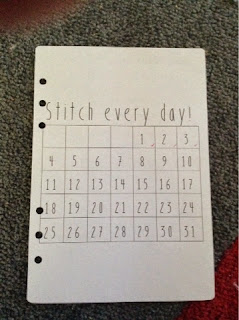 Stitch every day!
1 2 3
4 5 6 7 8 9 10
11 12 13 14 15 16 17
18 19 20 21 22 23 24
25 26 27 28 29 30 31